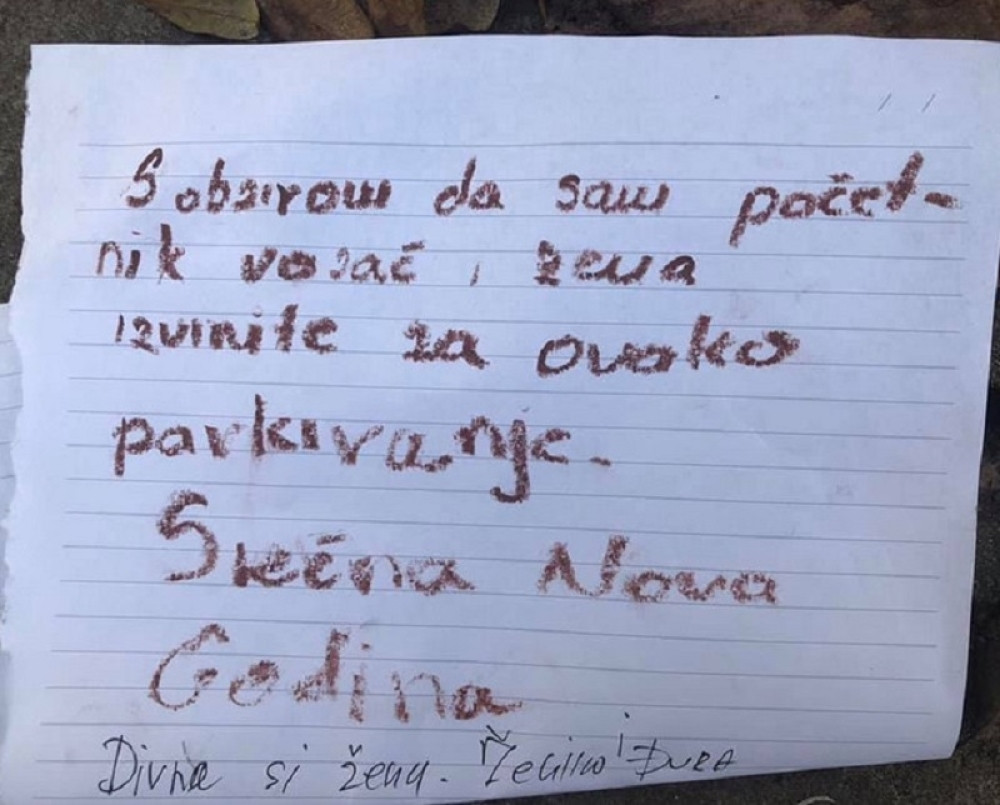 S obzirom da sam počet-
nik vozač, žena
izvinite za ovako
parkiranje.
Srećna Nova
Godina
Divna si ženo. Đura